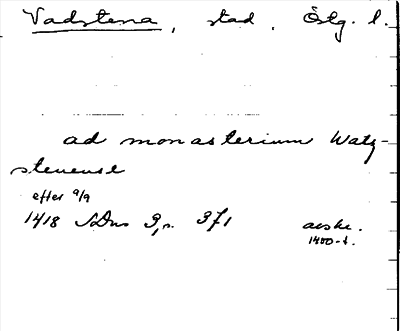 Vadstena, stad, Östg. l.
ad monasterium Watz-
stenense
efter 9/9
1418 SDns 3, s. 371 avskr.
1400-t.